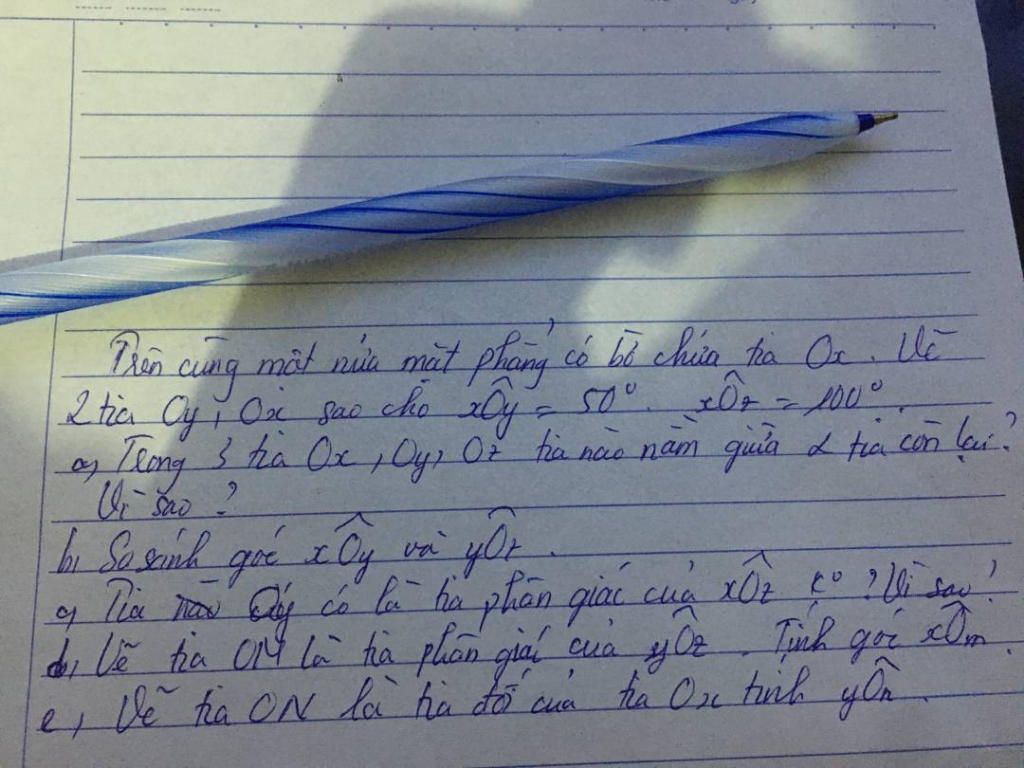 Trên cùng một nửa mặt phẳng có bờ chứa tia Ox. Vẽ
2 tia Oy, Ox sao cho xÔy = 50°. xÔz = 100°.
a, Trong 3 tia Ox, Oy, Oz tia nào nằm giữa 2 tia còn lại?
Vì sao?
b, So sánh góc xÔy và yÔz.
c, Tia Oy có là tia phân giác của xÔz k°? Vì sao?
d, Vẽ tia OM là tia phân giác của yÔz. Tính góc xÔm.
e, Vẽ tia ON là tia đối của tia Ox tính yÔn.